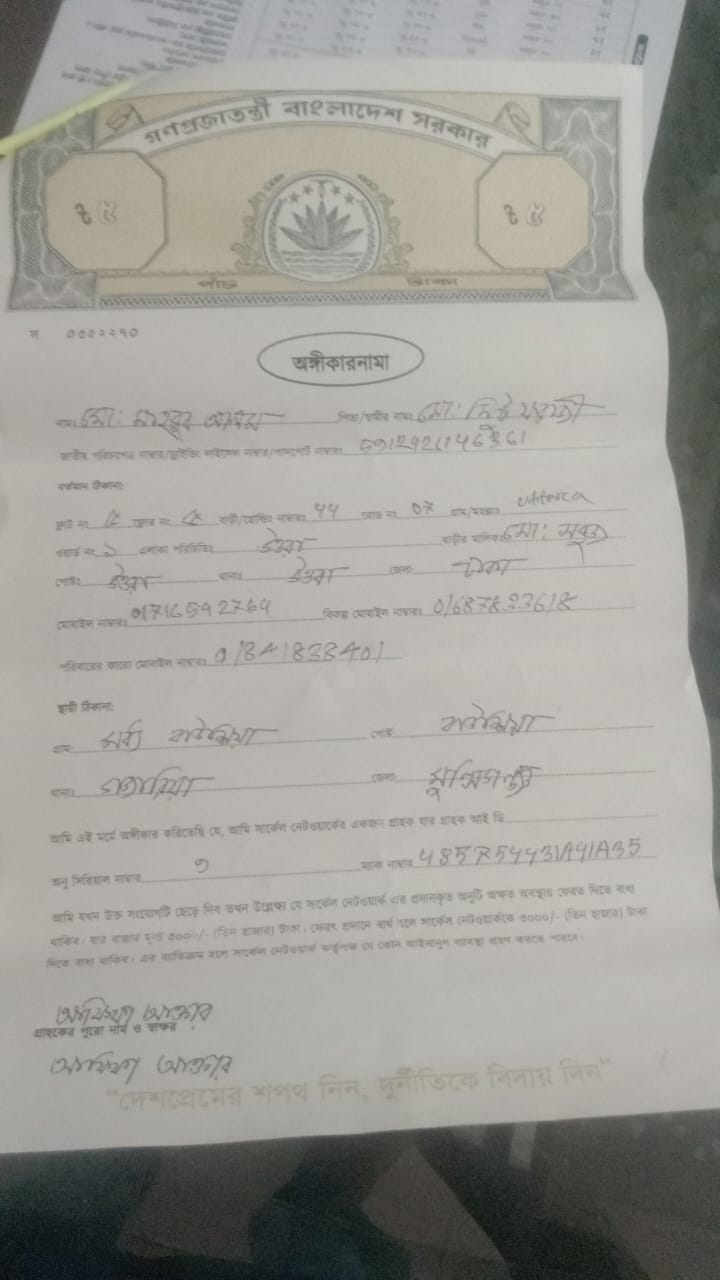 গণপ্রজাতন্ত্রী বাংলাদেশ সরকার
৳ ৫ ৳ ৫
পাঁচ টাকা
০৩৫২২৭০
অঙ্গীকারনামা
নামঃ মোঃ পিতা/স্বামীর নামঃ মোঃ
জাতীয় পরিচয়পত্র নাম্বার/ড্রাইভিং লাইসেন্স নাম্বার/পাসপোর্ট নাম্বারঃ
বর্তমান ঠিকানা:
ফ্ল্যাট নং ফ্লোর নং বাড়ী/হোল্ডিং নাম্বারঃ 44 রোড নং 07 গ্রাম/মহল্লাঃ uttora
ওয়ার্ড নং ১ এলাকা পরিচিতিঃ উত্তরা বাড়ীর মালিকঃ মোঃ সবুজ
পোষ্টঃ উত্তরা থানাঃ উত্তরা জেলাঃ ঢাকা
মোবাইল নাম্বারঃ 01716592764 বিকল্প মোবাইল নাম্বারঃ
পরিবারের কারো মোবাইল নাম্বারঃ 01841833401
স্থায়ী ঠিকানা:
গ্রামঃ মধ্য বাউশিয়া পোষ্টঃ বাউশিয়া
থানাঃ গজারিয়া জেলা: মুন্সিগঞ্জ
আমি এই মর্মে অঙ্গীকার করিতেছি যে, আমি সার্কেল নেটওয়ার্কের একজন গ্রাহক যার গ্রাহক আই ডি
অনু সিরিয়াল নাম্বার ম্যাক নাম্বার 485754431A41A35
আমি যখন উক্ত সংযোগটি ছেড়ে দিব তখন উল্লেক্ষ্য যে সার্কেল নেটওয়ার্ক এর প্রদানকৃত অনুটি অক্ষত অবস্থায় ফেরত দিতে বাধ্য
থাকিব। যার বাজার মূল্য ৩০০০/- (তিন হাজার) টাকা। ফেরৎ প্রদানে ব্যর্থ হলে সার্কেল নেটওয়ার্ককে ৩০০০/- (তিন হাজার) টাকা
দিতে বাধ্য থাকিব। এর ব্যতিক্রম হলে সার্কেল নেটওয়ার্ক কর্তৃপক্ষ যে কোন আইনানুগ ব্যবস্থা গ্রহন করতে পারবে।
আফিয়া আক্তার
গ্রাহকের পুরো নাম ও স্বাক্ষর
আফিয়া আক্তার
"দেশপ্রেমের শপথ নিন, দুর্নীতিকে বিদায় দিন"